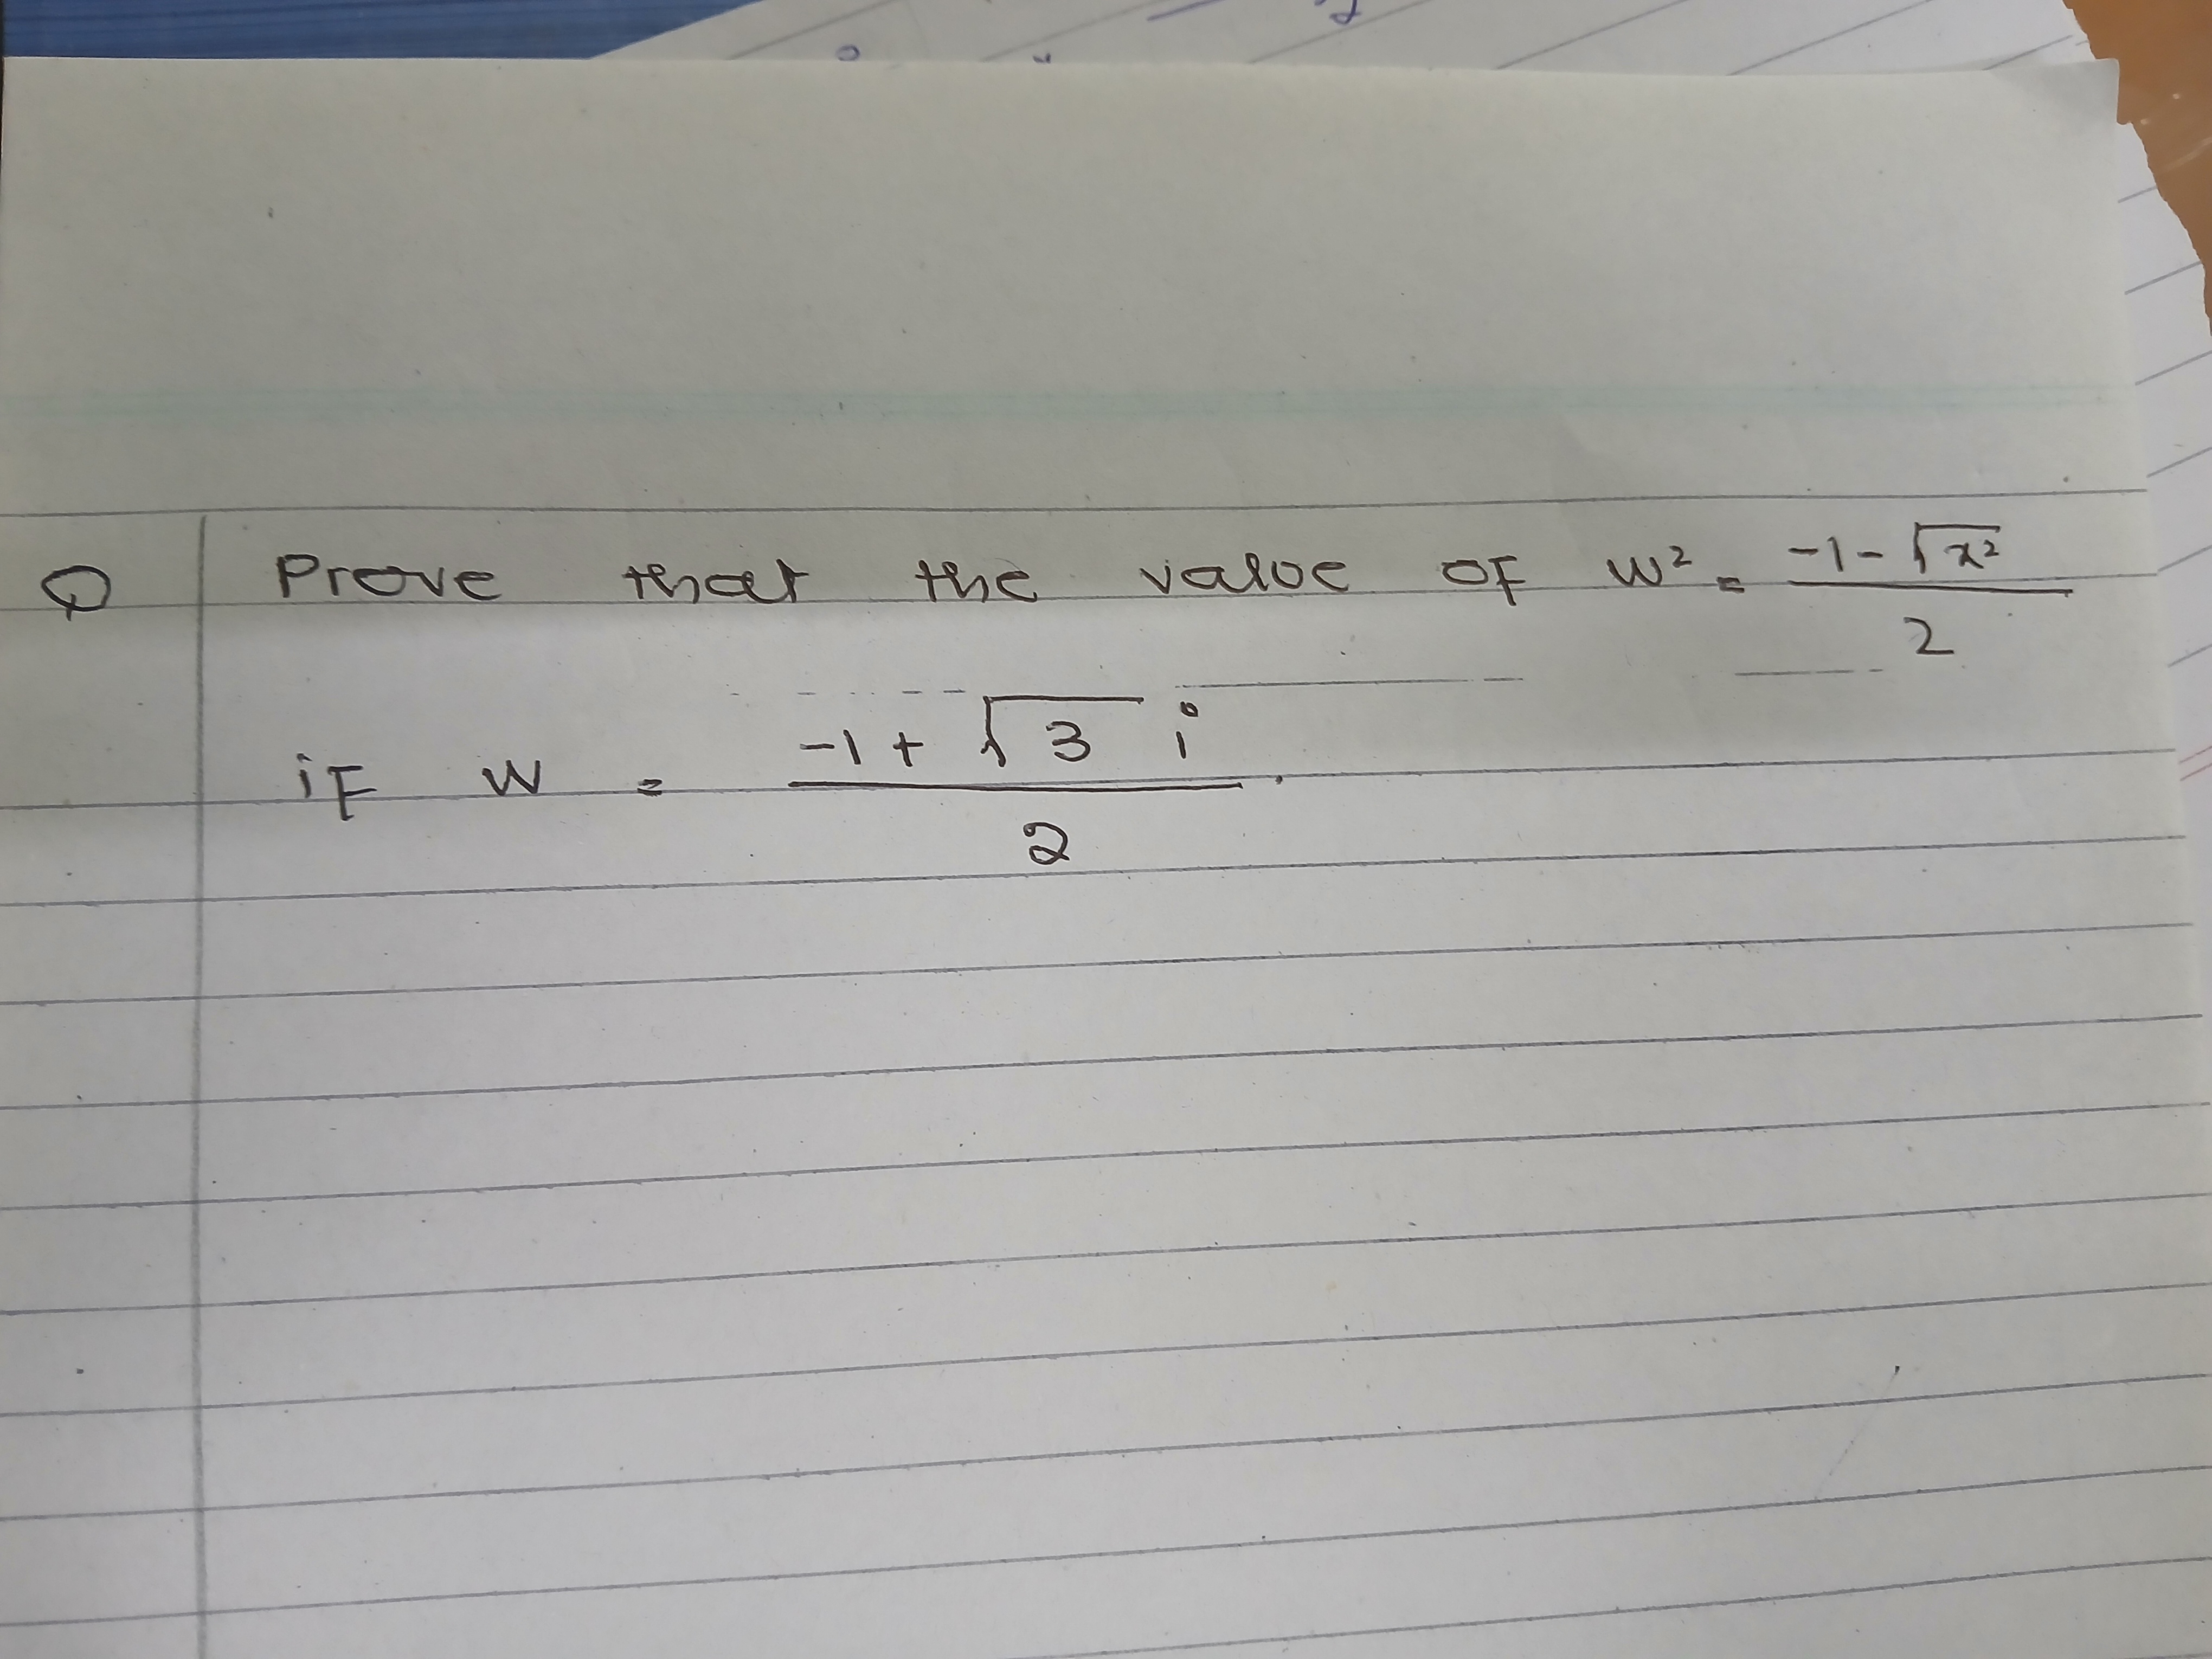 Q Prove that the value of w² = -1 - √x² / 2
if w = -1 + √3 i / 2